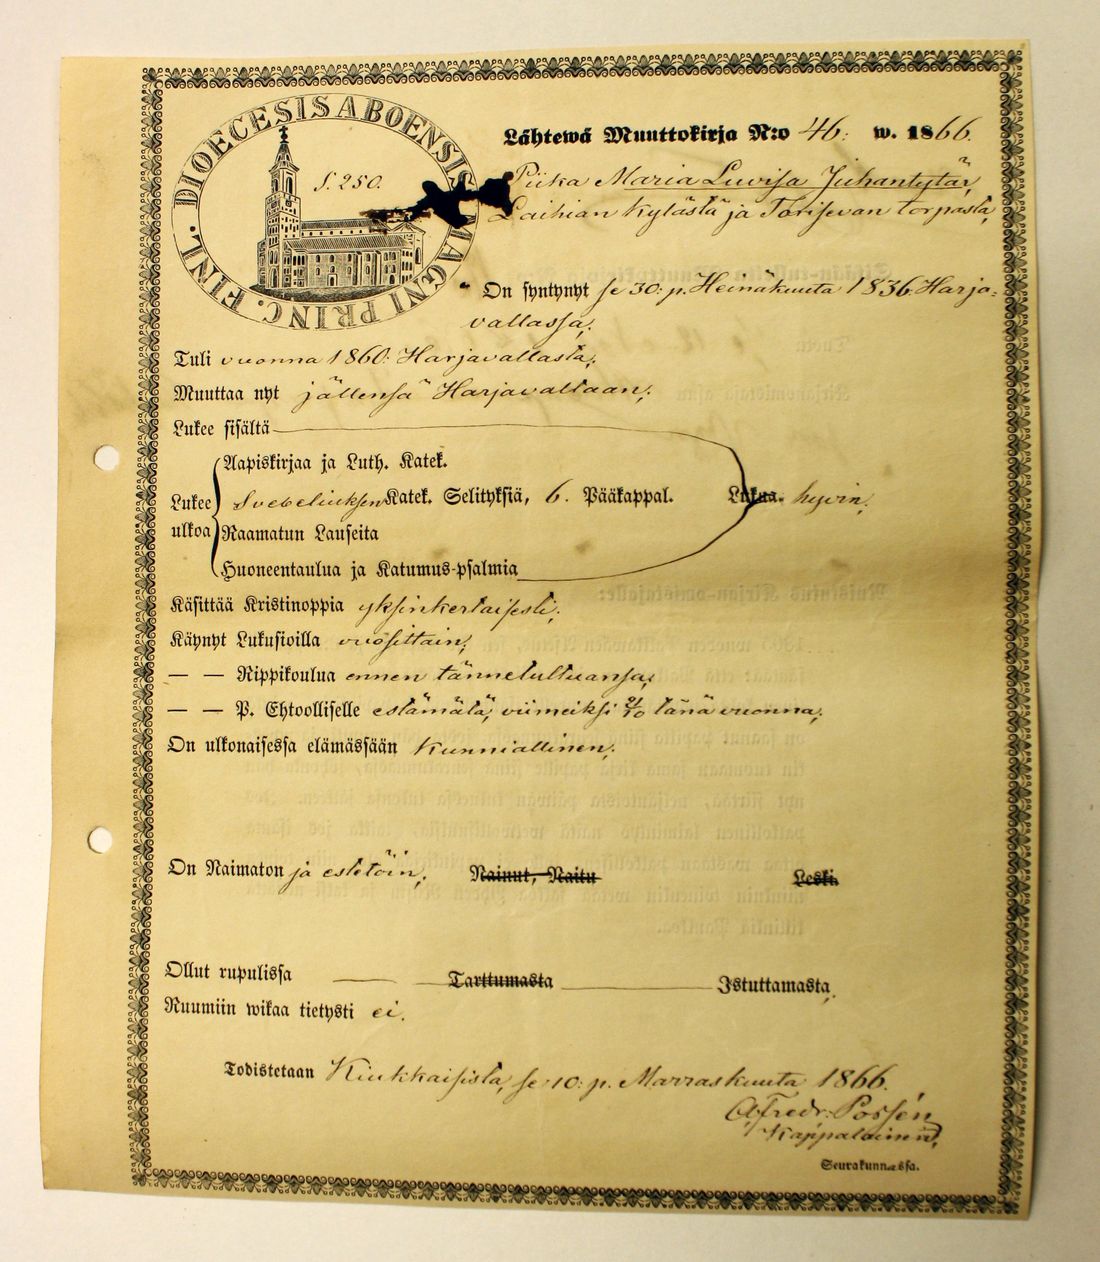 DIOECESIS ABOENSIS MAGNI PRINC. FINL.
S. 250.
Lähtewä Muuttokirja N:o 46. w. 1866.
Piika Maria Luvisa Juhantytär,
Laihian kylästä ja Torisevan torpasta,
On syntynyt se 30: p. Heinäkuuta 1836 Harja-
vallassa.
Tuli vuonna 1860: Harjavallasta,
Muuttaa nyt jällensä Harjavaltaan.
Lukee sisältä
Aapiskirjaa ja Luth. Katek.
Lukee ulkoa Svebeliuksen Katek. Selityksiä, 6. Pääkappal. Lukua. hyvin,
Raamatun Lauseita
Huoneentaulua ja Katumus-psalmia
Käsittää Kristinoppia yksinkertaisesti,
Käynyt Lukusioilla vuosittain,
— — Rippikoulua ennen tännetultuansa,
— — P. Ehtoolliselle estämätä, viimeiksi tänä vuonna,
On ulkonaisessa elämässään Kunniallinen,
On Naimaton ja estetöin. Nainut, Naitu Leski.
Ollut rupulissa — Tarttumasta — Istuttamasta,
Ruumiin wikaa tietysti ei.
Todistetaan Kiukkaisista, se 10: p. Marraskuuta 1866.
Alfredr. Possén
Kappalainen,
Seurakunnassa.